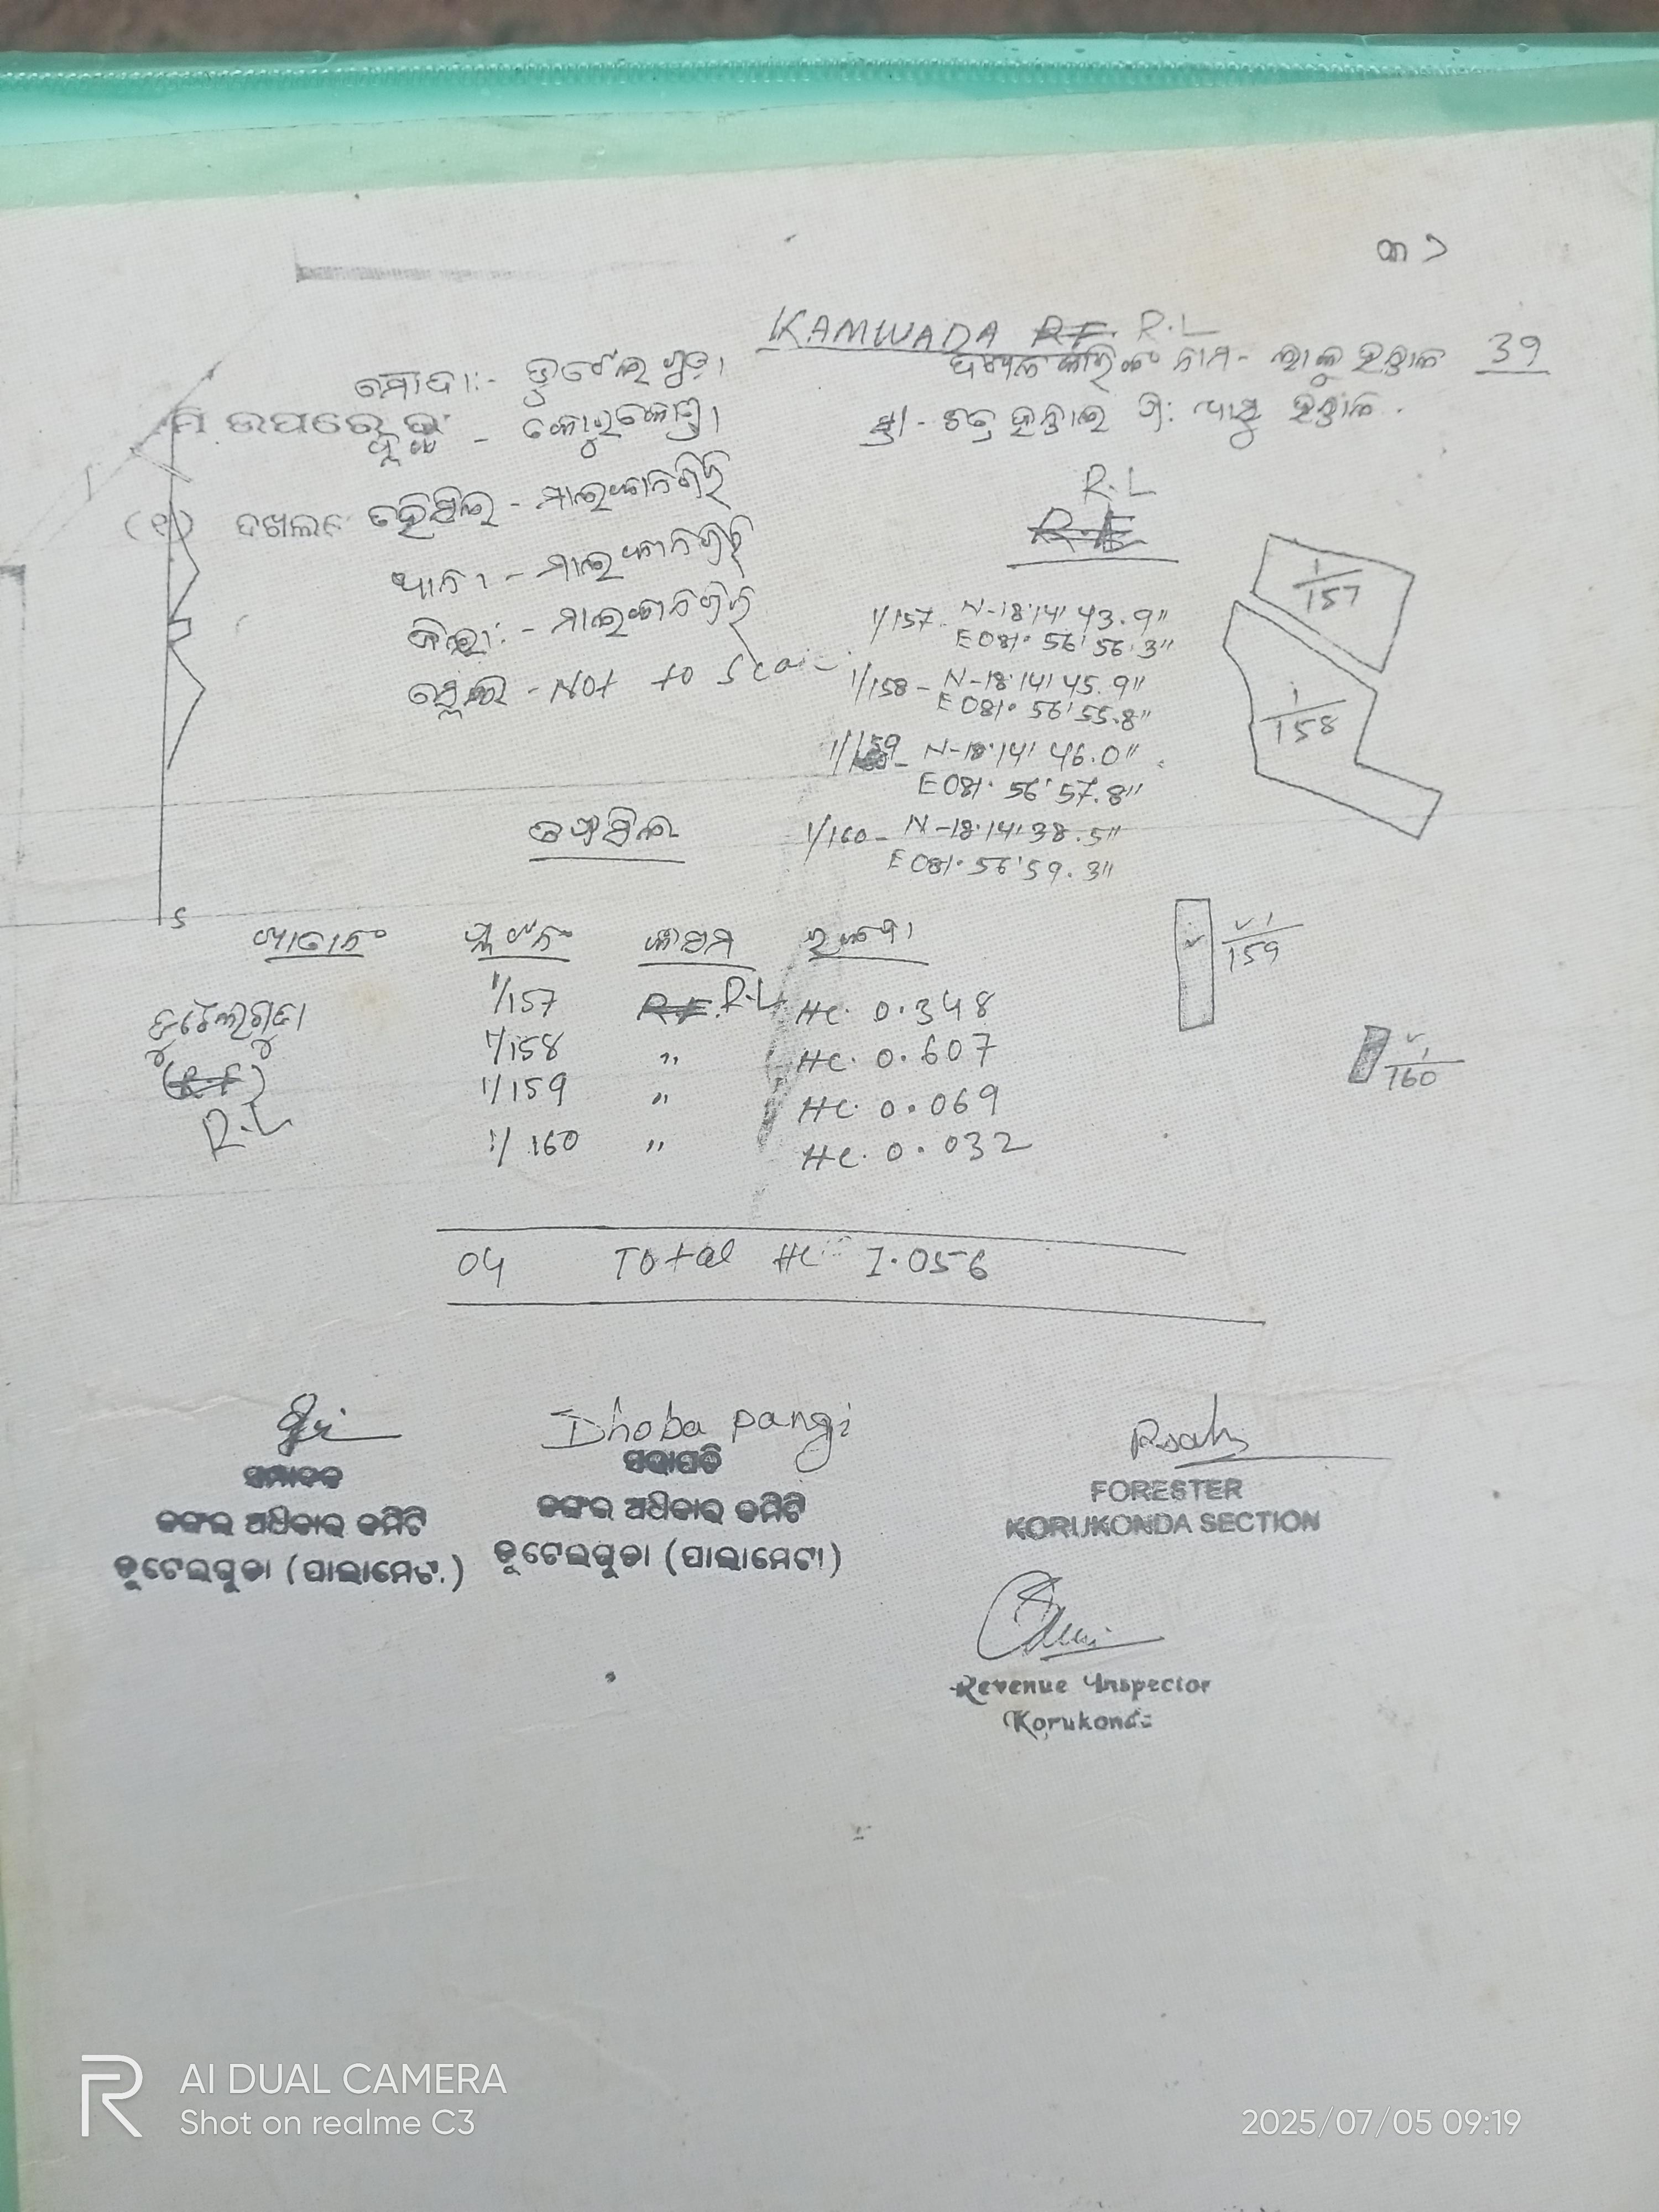 ୩୨
KAMWADA R.F. R.L
ମୌଜା:- ଡୁଟେଲଗୁଡା
ଦଖଲକାରିଙ୍କ ନାମ - ଲାଳୁ ହନ୍ତାଳ 39
ମି ଉପରେ
ବ୍ଲକ - କୋରୁକୋଣ୍ଡା
ସ୍ତ୍ରୀ - ହନ୍ତାଳ ପି: ହନ୍ତାଳ.
(୩) ଦଖଲ
ତହସିଲ - ମାଲକାନଗିରି
R.L
R.F.
ଥାନା - ମାଲକାନଗିରି
ଜିଲ୍ଲା:- ମାଲକାନଗିରି
ସ୍କେଲ - Not to Scale
1/157
1/158
1/157 - N-18°14' 43.9"
E 081° 56' 56.3"
1/158 - N-18°14' 45.9"
E 081° 56' 55.8"
1/159 - N-18°14' 46.0"
E 081° 56' 57.8"
1/160 - N-18°14' 38.5"
E 081° 56' 59.3"
ତଫସିଲ
S
ଖାତା ନଂ ପ୍ଲଟ ନଂ କିସମ ରକବା
1/159
ଡୁଟେଲଗୁଡା 1/157 R.F. R.L HC. 0.348
1/158 " HC. 0.607
(R.F) 1/159 " HC. 0.069
R.L 1/160 " HC. 0.032
1/160
04 Total HC 1.056
Dhoba pangi
ସମ୍ପାଦକ
ଜଙ୍ଗଲ ଅଧିକାର କମିଟି
ଡୁଟେଲଗୁଡା (ପାଲାମେଟା)
ସଭାପତି
ଜଙ୍ଗଲ ଅଧିକାର କମିଟି
ଡୁଟେଲଗୁଡା (ପାଲାମେଟା)
FORESTER
KORUKONDA SECTION
Revenue Inspector
Korukonda
AI DUAL CAMERA
Shot on realme C3
2025/07/05 09:19